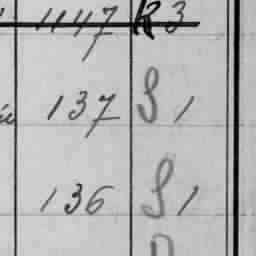 1147 R 3
137 S 1
136 S 1